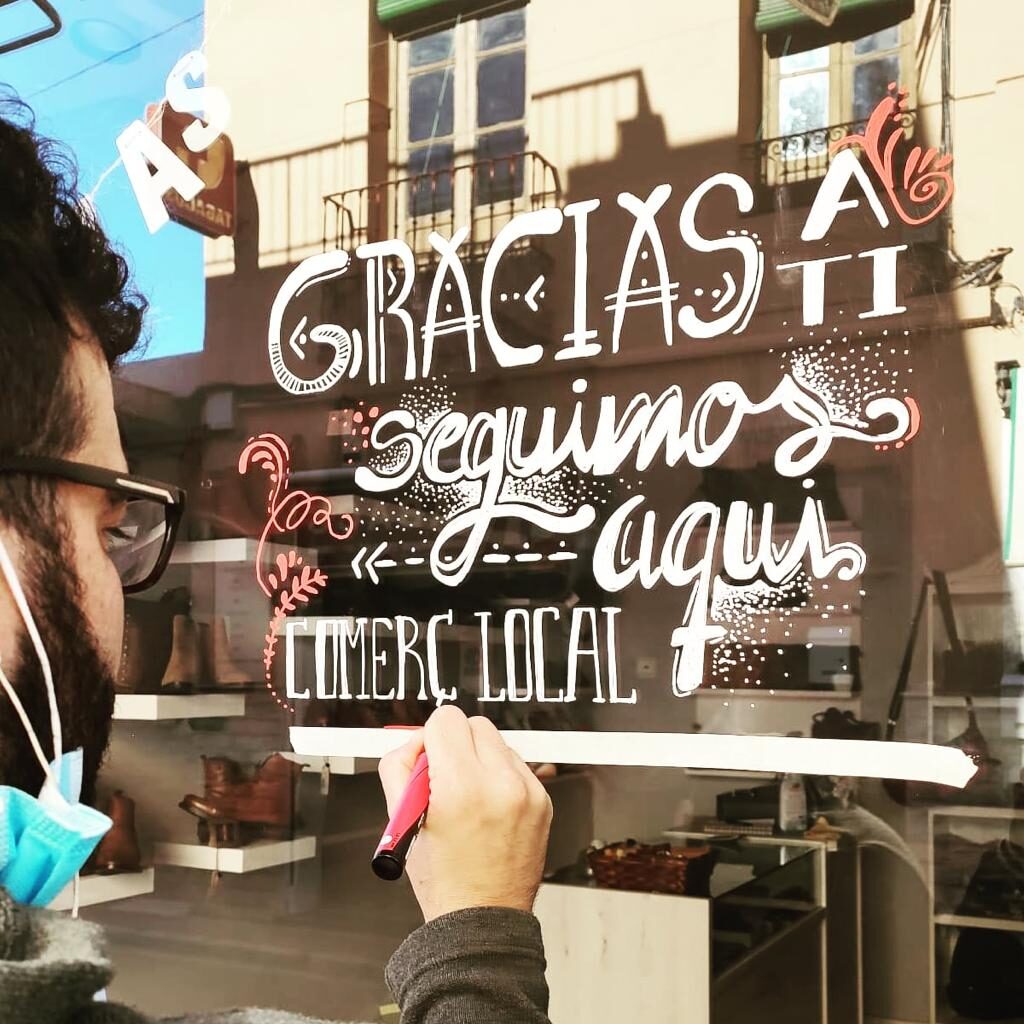 AS
GRACIAS A TI
seguimos
aqui
COMERÇ LOCAL